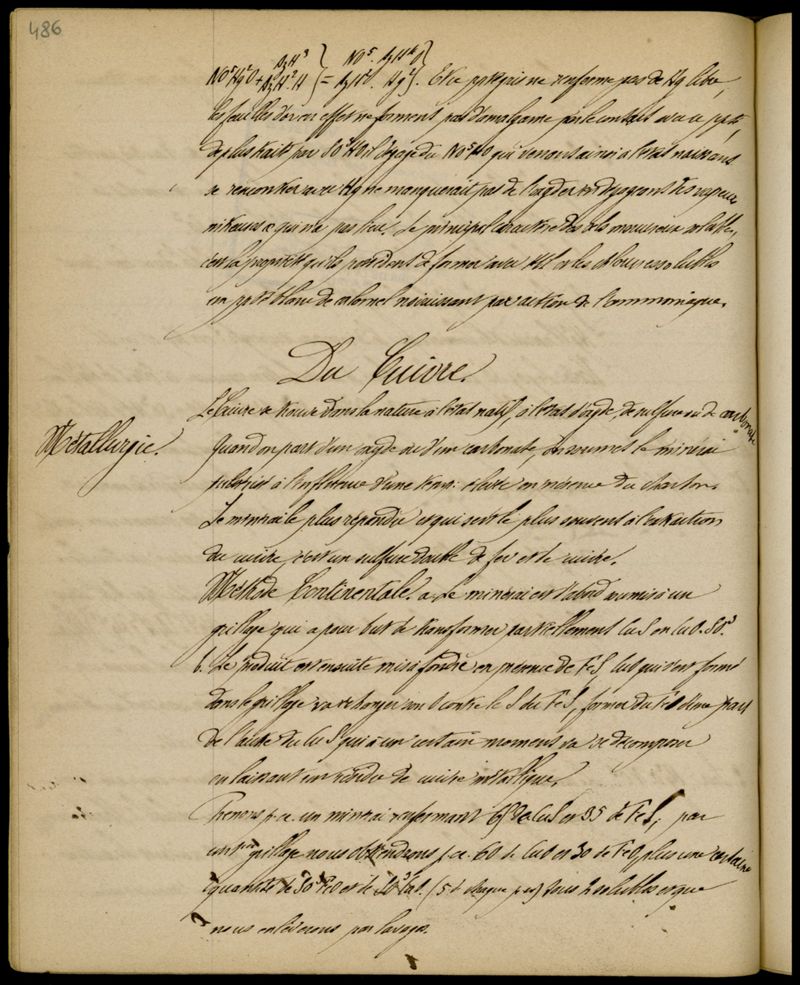 486
NO⁵Hg²O + AzH³ AzH².H } = NO⁵. AzH⁴O AzH². Hg² }. Ce ppté gris ne renferme pas de Hg libre,
les feuilles d'or en effet ne forment pas d'amalgame par le contact avec ce ppté,
de plus traité par SO³HO il dégage du NO⁵HO qui venant ainsi à l'état naissant
se rencontrer avec Hg ne manquerait pas de l'oxyder en dégageant des vapeurs
nitreuses ce qui n'a pas lieu. Le principal caractère des sels mercureux solubles,
c'est la propriété qu'ils possèdent de former avec HCl et les chlorures solubles
un ppté blanc de calomel noircissant par action de l'ammoniaque.
Du Cuivre.
Le Cuivre se trouve dans la nature à l'état natif, à l'état d'oxyde, de sulfure ou de carbonate
Métallurgie.
Quand on part d'un oxyde ou d'un carbonate, on soumet le minerai
pulvérisé à l'influence d'une temp: élevée en présence du charbon.
Le minerai le plus répandu et qui sert le plus souvent à l'extraction
du cuivre c'est un sulfure double de fer et de cuivre.
Méthode Continentale. a. Le minerai est d'abord soumis à un
grillage qui a pour but de transformer partiellement CuS en CuO.SO³.
b. Le produit est ensuite mis à fondre en présence de FeS, CuO qui s'est formé
dans le grillage va échanger son O contre le S du FeS, former du FeO d'une part
de l'autre du CuS qui à un certain moment va se décomposer
en laissant un résidu de cuivre métallique.
Prenons p.ex. un minerai renfermant 65 de CuS et 35 de FeS, par
un 1er grillage nous obtiendrons p.ex. 60 de CuO et 30 de FeO, plus une certaine
quantité de SO³FeO et de SO³CuO. (5 de chaque p.ex) tous 2 solubles et que
nous enlèverons par lavage.